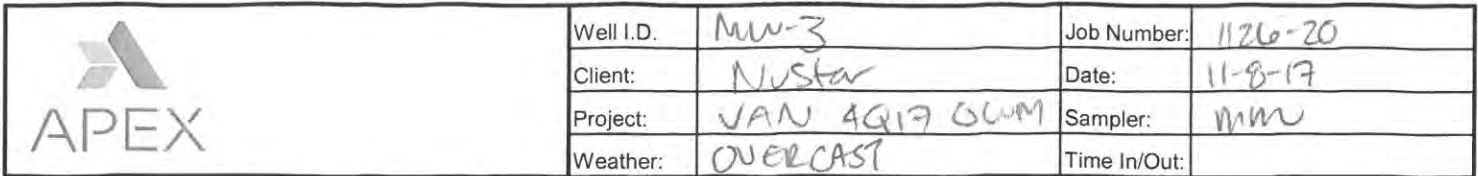 Well I.D. MW-3 Job Number: 1126-20
Client: NuStar Date: 11-8-17
APEX
Project: VAN 4Q17 GWM Sampler: MM
Weather: OVERCAST Time In/Out: